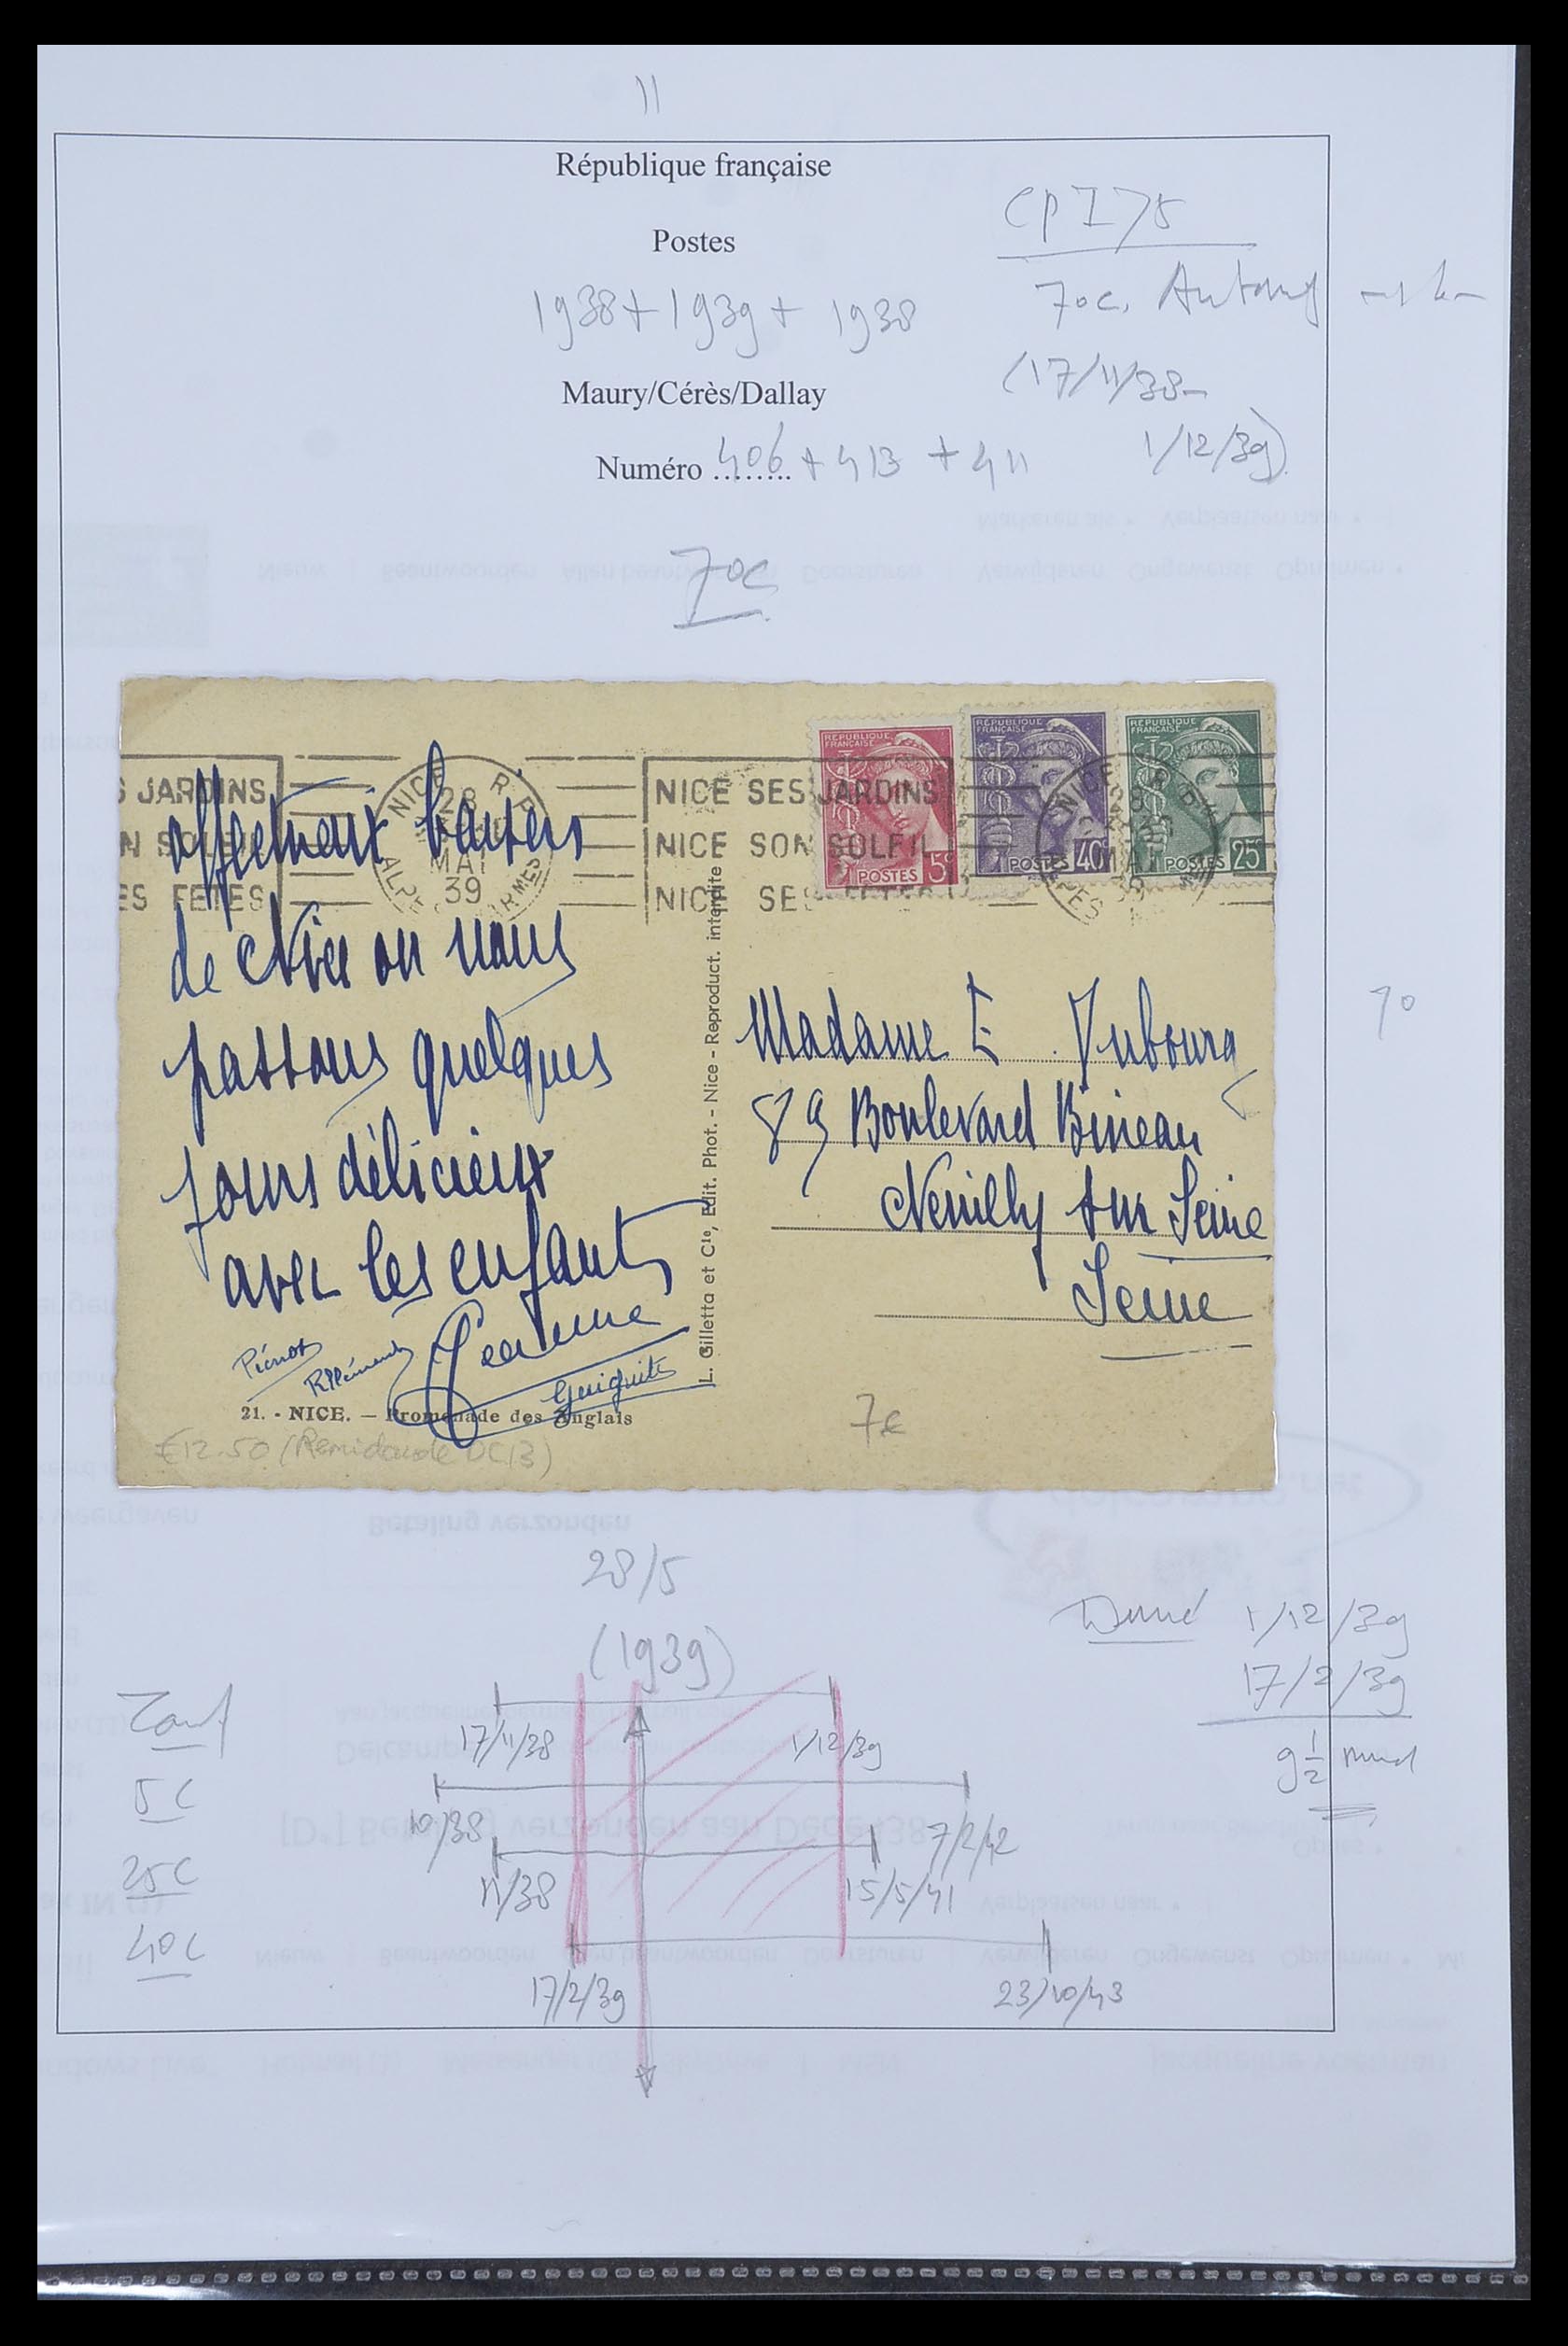 11
République française
Postes
1938 + 1939 + 1938
Maury/Cérès/Dallay
Numéro ........ 406 + 413 + 411
70c
70c.
(17/11/38-
1/12/39)
S JARDINS
N SOLEIL
ES FETES
NICE R.P.
28
MAI
39
NICE SES JARDINS
NICE SON SOLEIL
NICE SES FETES
RÉPUBLIQUE FRANÇAISE
POSTES 5c
RÉPUBLIQUE FRANÇAISE
POSTES 40c
RÉPUBLIQUE FRANÇAISE
POSTES 25c
baisers
de Nice ou nous
passons quelques
jours délicieux
avec les enfants
Pierrot
Jeanne
Guiguite
21. - NICE. — Promenade des Anglais
€12.50
L. Gilletta et Cie, Edit. Phot. - Nice - Reproduct. interdite
Madame E. Dubourg
89 Boulevard Bineau
Neuilly sur Seine
Seine
7€
70
28/5
(1939)
1/12/39
17/2/39
9 1/2
17/11/38
1/12/39
5c
10/38
7/2/42
25c
11/38
15/5/41
40c
17/2/39
23/10/43
Betaling verzonden